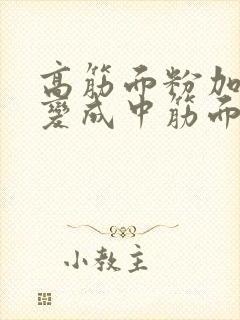 高筋面粉加
變成中筋面
小教主